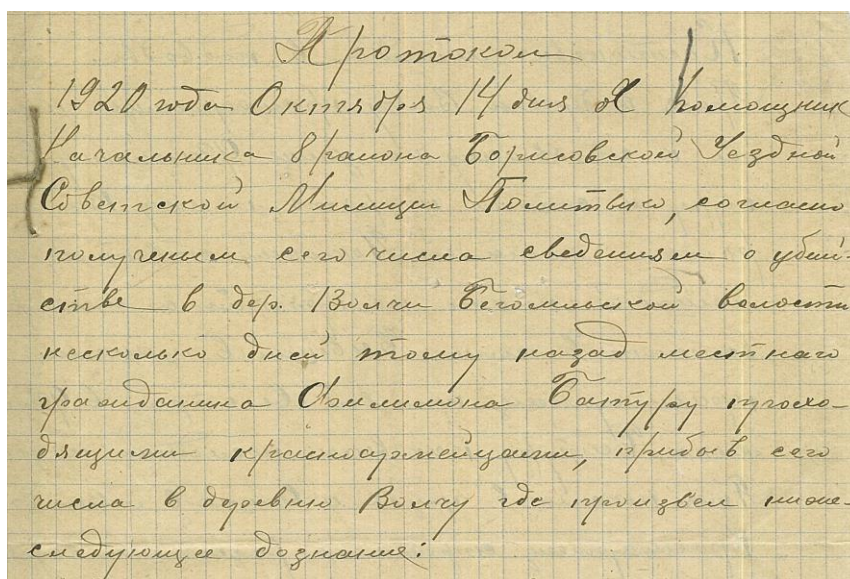 Протокол
1920 года Октября 14 дня Я Помощник
Начальника 8 района Борисовской Уездной
Советской Милиции Политыко, согласно
полученым сего числа сведениям о убий-
стве в дер. Волчи Бегомльской волости
несколько дней тому назад местнаго
гражданина Филимона Батуру прохо-
дящими красноармейцами, прибыв сего
числа в деревню Волчу где произвел ниже-
следующее дознание: